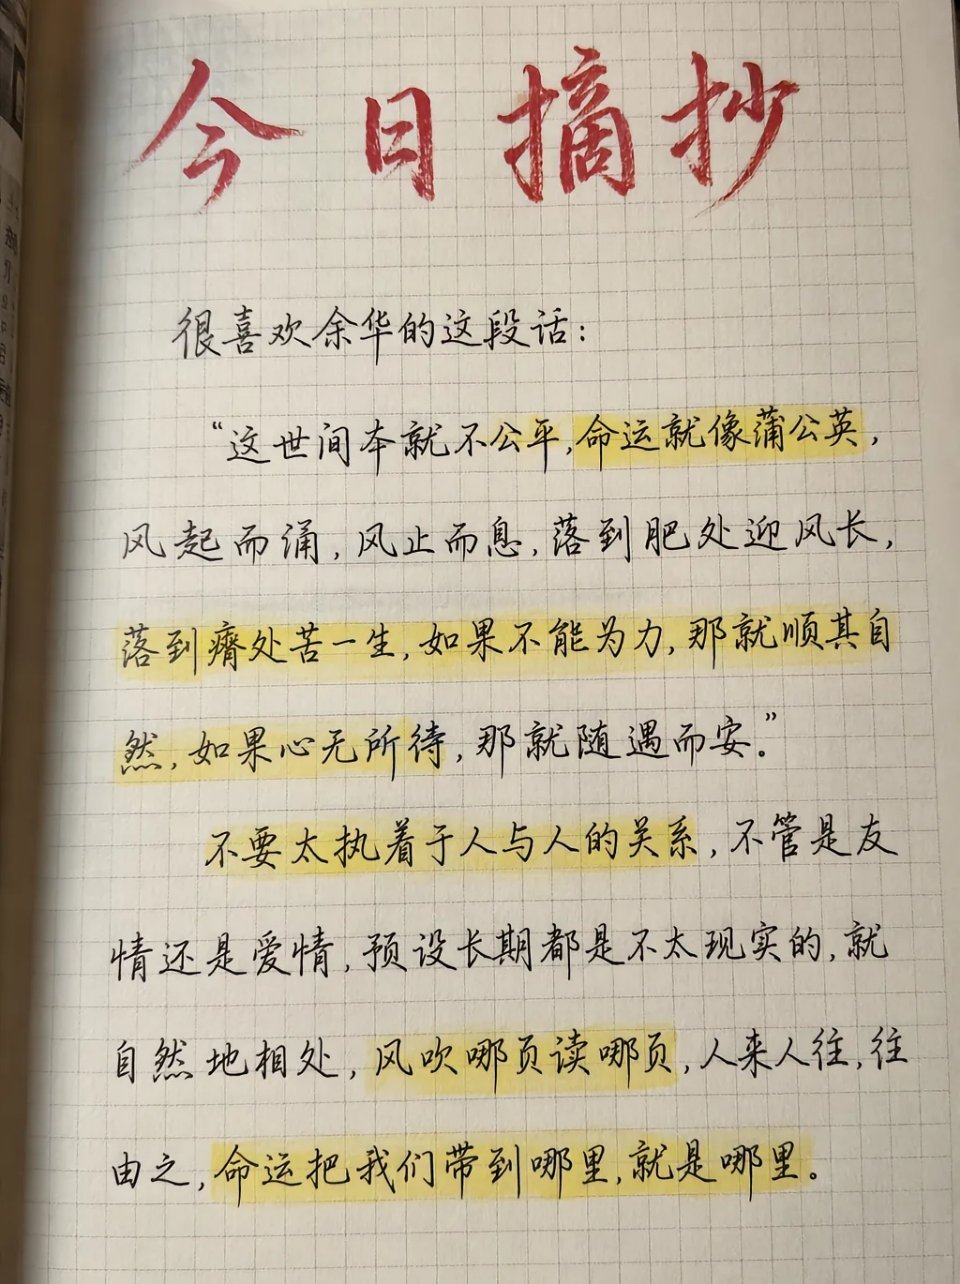 今日摘抄
很喜欢余华的这段话：
“这世间本就不公平，命运就像蒲公英，
风起而涌，风止而息，落到肥处迎风长，
落到瘠处苦一生，如果不能为力，那就顺其自
然，如果心无所待，那就随遇而安。”
不要太执着于人与人的关系，不管是友
情还是爱情，预设长期都是不太现实的，就
自然地相处，风吹哪页读哪页，人来人往，往
由之，命运把我们带到哪里，就是哪里。